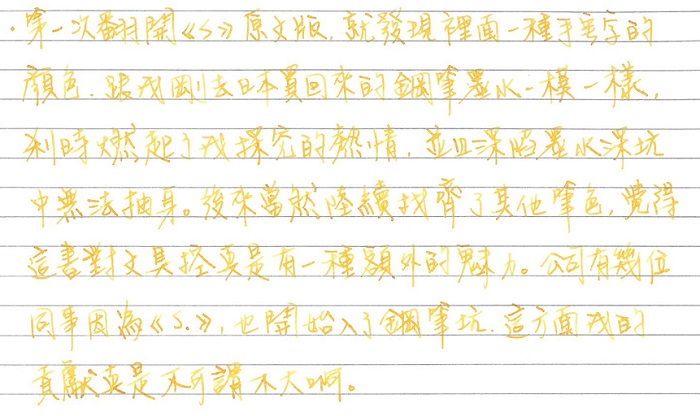 ·第一次翻開《S》原文版,就發現裡面一種手寫字的
顏色.跟我剛去日本買回來的鋼筆墨水一模一樣,
剎時燃起了我探究的熱情,並且深陷墨水深坑
中無法抽身。後來當然陸續找齊了其他筆色,覺得
這書對文具控真是有一種額外的魅力。公司有幾位
同事因為《S.》,也開始入了鋼筆坑.這方面我的
貢獻真是不可謂不大啊。